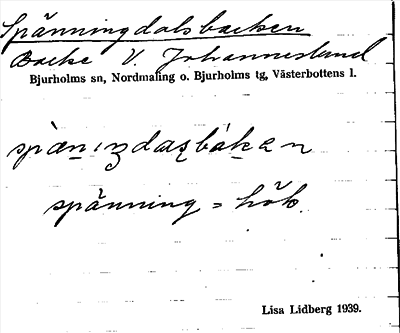 Spänningdalsbacken
Backe V. Johanneslund
Bjurholms sn, Nordmaling o. Bjurholms tg, Västerbottens l.
spänning = hök.
Lisa Lidberg 1939.